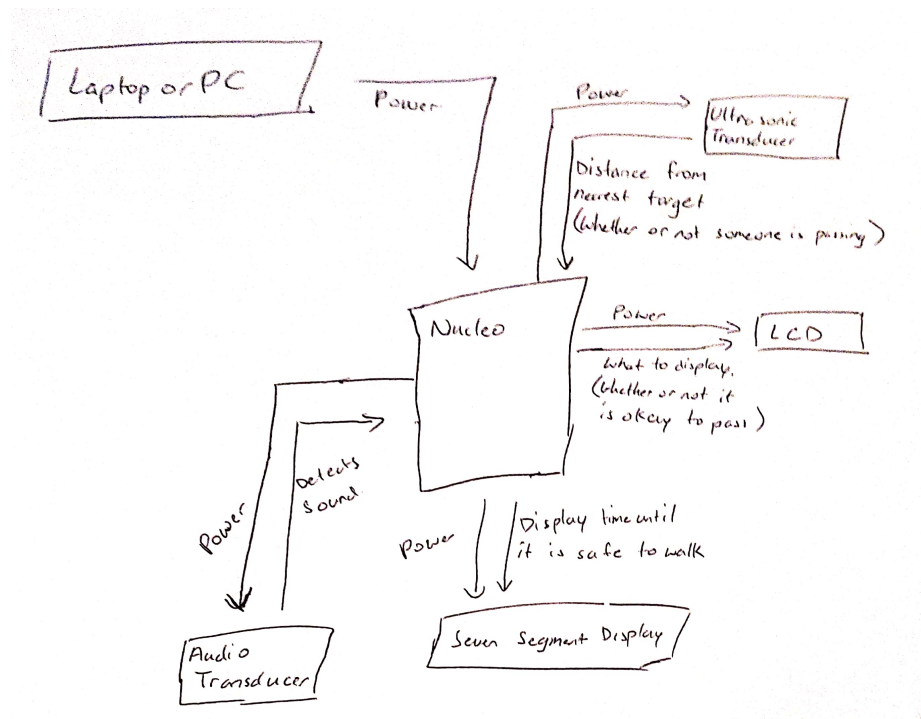 Laptop or PC
Power
Power
Ultrasonic
Transducer
Distance from
nearest target
(Whether or not someone is passing)
Nucleo
Power
LCD
What to display.
(Whether or not it
is okay to pass)
Detects
Sound
Power
Power
Display time until
it is safe to walk
Audio
Transducer
Seven Segment Display